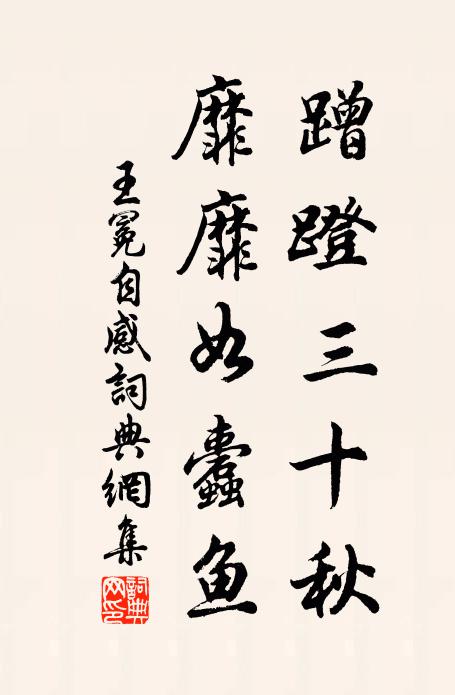 蹭蹬三十秋
靡靡如蠹鱼
王冕自感詞典網集
詞典网印